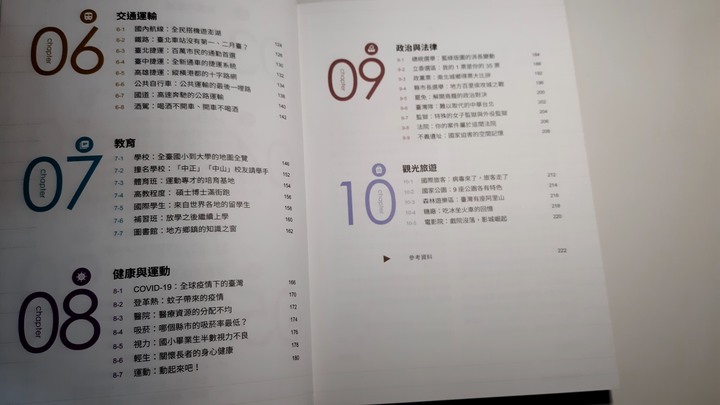 chapter 06
交通運輸
6-1 國內航線：全民搭機遊澎湖
6-2 鐵路：臺北車站沒有第一、二月臺？ 134
6-3 臺北捷運：百萬市民的通勤首選
6-4 臺中捷運：全新通車的捷運系統
6-5 高雄捷運：縱橫港都的十字路網
6-6 公共自行車：公共運輸的最後一哩路
6-7 國道：高速奔馳的公路運輸
6-8 酒駕：喝酒不開車、開車不喝酒
chapter 07
教育
7-1 學校：全臺國小到大學的地圖全覽 146
7-2 撞名學校：「中正」「中山」校友請舉手 152
7-3 體育班：運動專才的培育基地 154
7-4 高教程度：碩士博士滿街跑 156
7-5 國際學生：來自世界各地的留學生 158
7-6 補習班：放學之後繼續上學 160
7-7 圖書館：地方鄉鎮的知識之窗 162
chapter 08
健康與運動
8-1 COVID-19：全球疫情下的臺灣 166
8-2 登革熱：蚊子帶來的疫情 170
8-3 醫院：醫療資源的分配不均 172
8-4 吸菸：哪個縣市的吸菸率最低？ 174
8-5 視力：國小畢業生半數視力不良 176
8-6 輕生：關懷長者的身心健康 178
8-7 運動：動起來吧！ 180
chapter 09
政治與法律
9-1 總統選舉：藍綠版圖的消長變動 184
9-2 立委選區：我的1票是你的35票 188
9-3 政黨票：南北城鄉得票大比拚 190
9-4 縣市長選舉：地方百里侯攻城之戰
9-5 罷免：解開烏龍的政治對決
9-6 臺灣隊：難以取代的中華台北 202
9-7 監獄：特殊的女子監獄與外役監獄 204
9-8 法院：你的案件屬於這間法院 206
9-9 不義遺址：國家迫害的空間記憶 208
chapter 10
觀光旅遊
10-1 國際旅客：病毒來了，旅客走了 212
10-2 國家公園：9座公園各有特色 214
10-3 森林遊樂區：臺灣有座阿里山 216
10-4 糖廠：吃冰坐火車的回憶 218
10-5 電影院：戲院沒落、影城崛起 220
▶ 參考資料 222